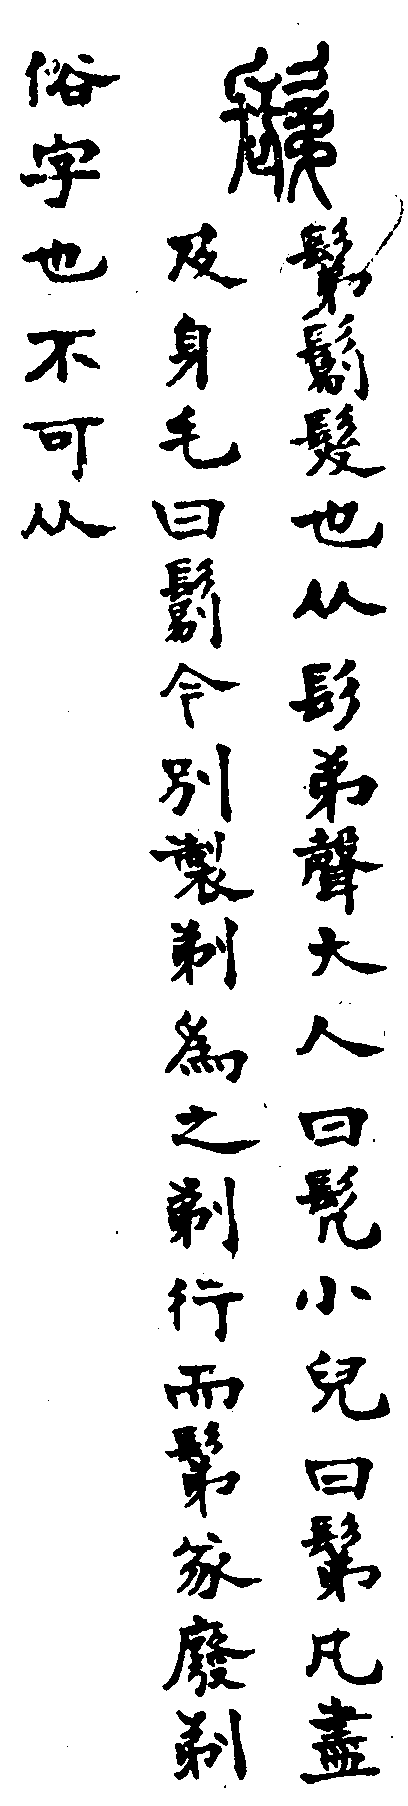 鬀
鬀䰂髮也从髟弟聲大人曰髡小兒曰鬀凡盡
及身毛曰䰂今別製剃為之剃行而鬀篆廢剃
俗字也不可从